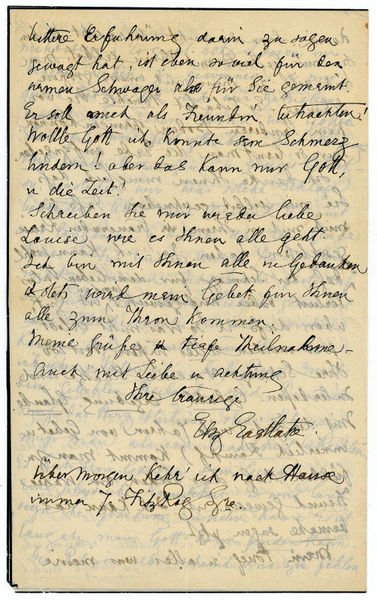 bittere Erfahrung darin zu sagen
gewagt hat, ist eben so viel für den
armen Schwager als für Sie gemeint.
Er soll mich als Freundin betrachten!
Wollte Gott ich könnte sein Schmerz
lindern! aber das kann nur Gott,
u die Zeit!
Schreiben Sie mir wieder liebe
Louise wie es Ihnen alle geht.
Ich bin mit Ihnen alle in Gedanken
& stets wird mein Gebet für Ihnen
alle zum Thron kommen,
Meine Grüße & tiefe Theilnahme -
Auch mit Liebe u achtung
Ihre traurige
Eliz Eastlake
über Morgen Kehr' ich nach Hause
immer 7 Fitz Roy Sqre.